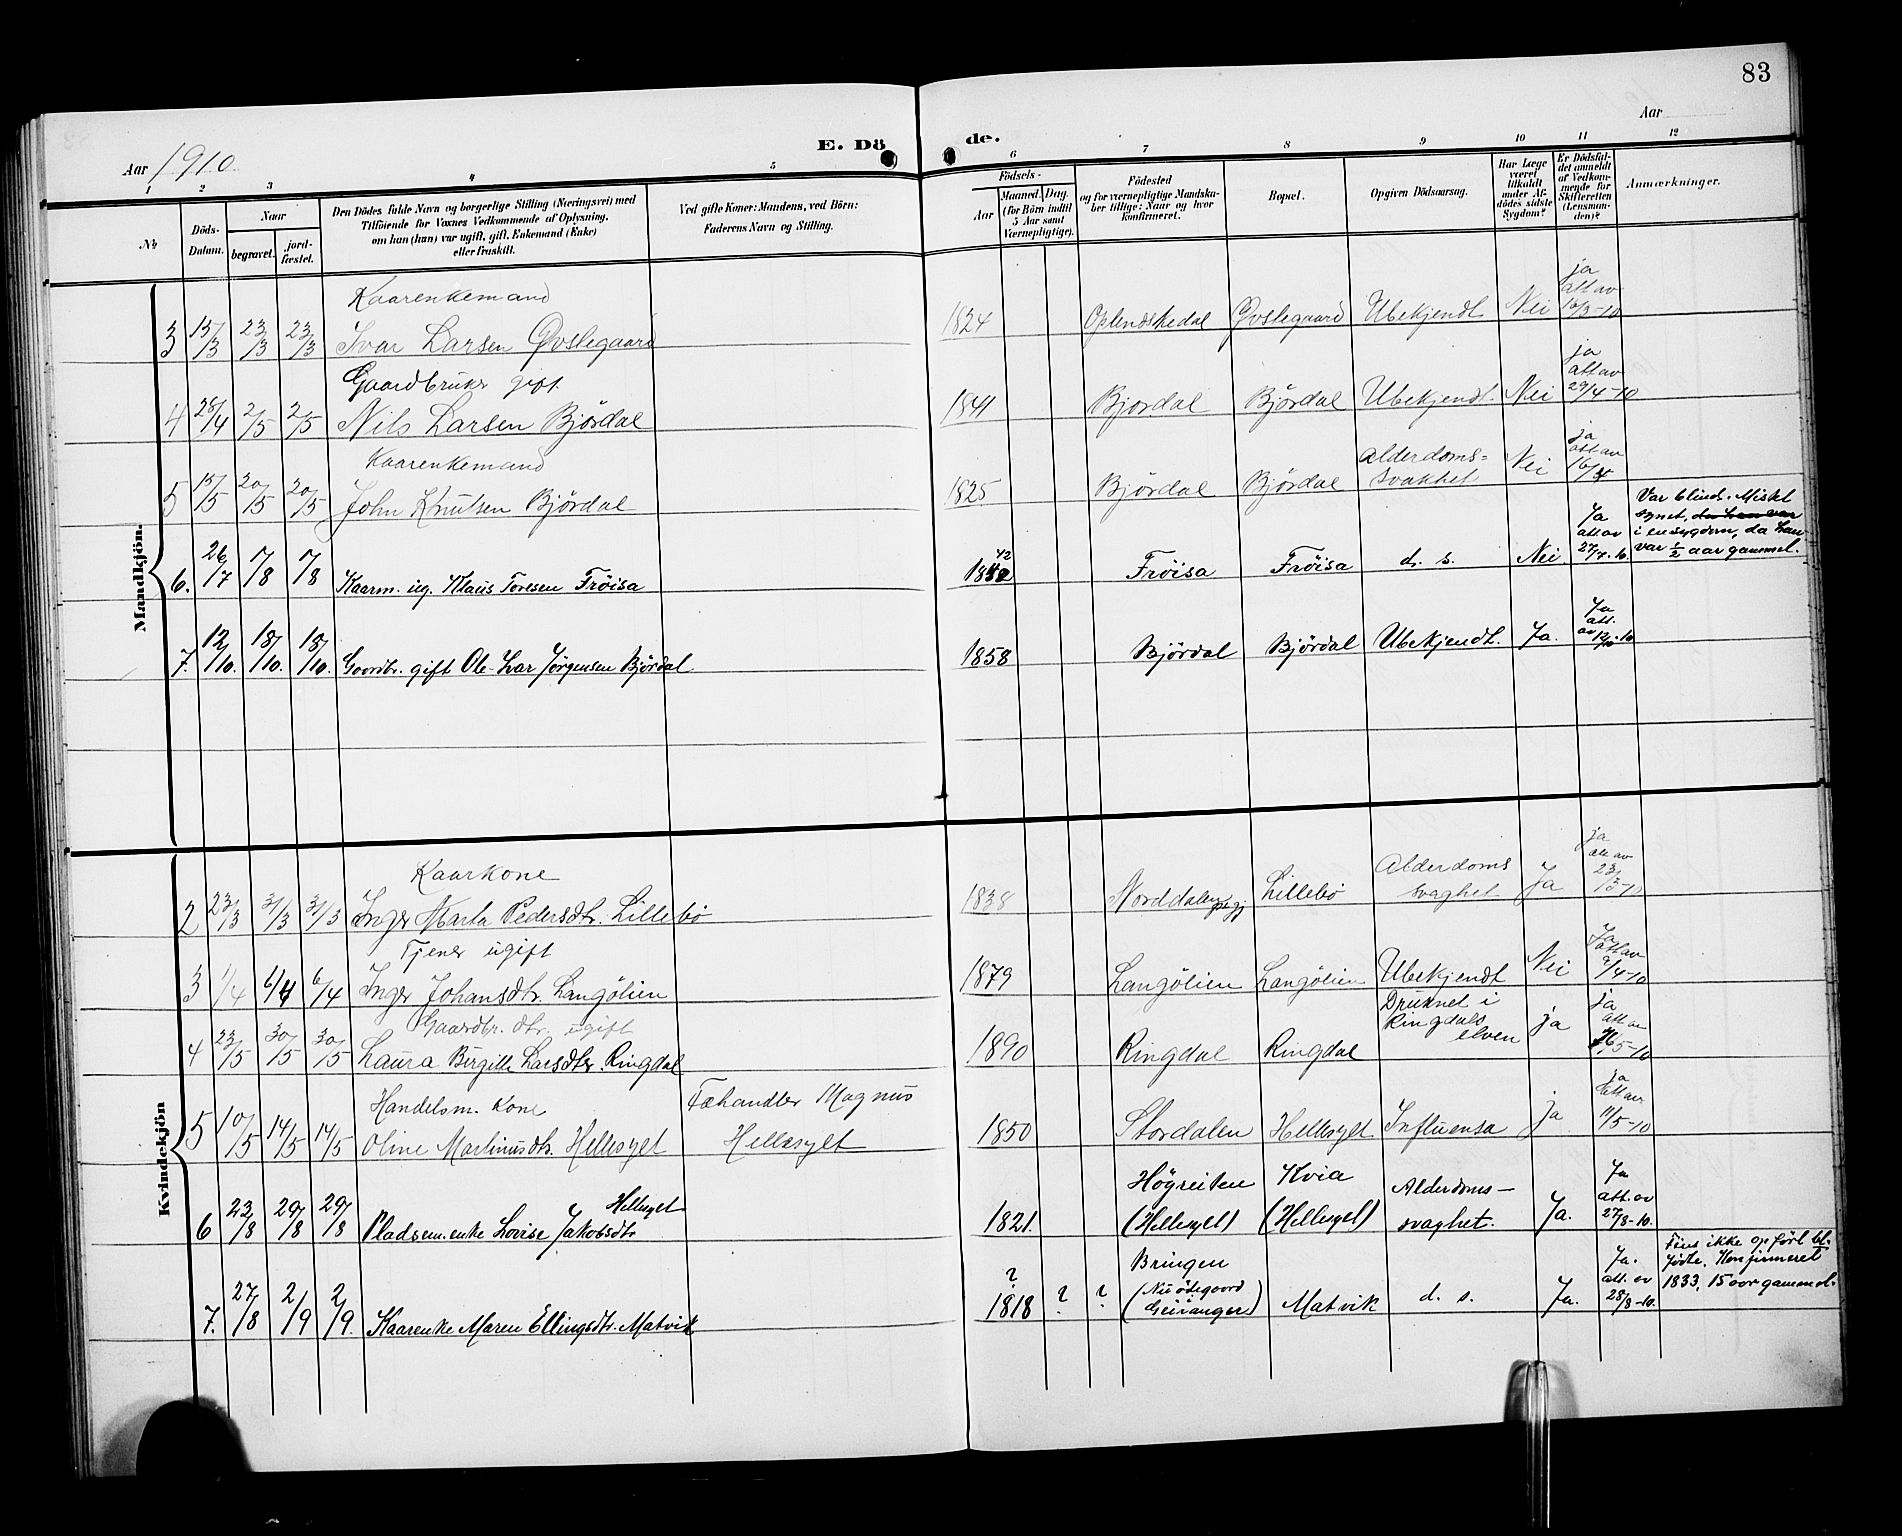 83
Aar 1910.
E. Dö
de.
Aar
1 2 3 4 5 6 7 8 9 10 11 12
No
Döds-Datum.
Naar
begravet.
jord-fæstet.
Den Dödes fulde Navn og borgerlige Stilling (Næringsvei) med
Tilföiende for Voxnes Vedkommende af Oplysning,
om hun (han) var ugift, gift, Enkemand (Enke)
eller fraskilt.
Ved gifte Koner: Mandens, ved Börn:
Faderens Navn og Stilling.
Födsels-
Aar
Maaned.
Dag.
(for Börn indtil
5 Aar samt
Værnepligtige).
Födested
og for værnepligtige Mandska-
ber tillige: Naar og hvor
konfirmeret.
Bopæl.
Opgiven Dödsaarsag.
Har Læge
været
tilkaldt
under Af-
dödes sidste
Sygdom?
Er Dödsfal-
det anmeldt
af Vedkom-
mende for
Skifteretten
(Lensman-
den)?
Anmærkninger.
Mandkjön.
Kaarenkemand
3 15/3 23/3 23/3 Ivar Larsen Øvslegaard 1824 Oplendskedal Øvslegaard Ubekjendt Nei ja att av 16/3-10
Gaardbruker gift
4 28/4 2/5 2/5 Nils Larsen Björdal 1841 Bjordal Björdal Ubekjendt. Nei ja att av 29/4-10
Kaarenkemand
5 15/5 20/5 20/5 John Knutsen Björdal 1825 Björdal Björdal Alderdoms=svakhet Nei ja att av
6. 26/7 7/8 7/8 Kaarm. ug. Klaus Toresen Fröisa 42 Fröisa Fröisa d. s. Nei. Ja att av 27/7-10. Var blind. Mistet
synet, da han var
i en sygdom, da han
var 1/2 aar gammel.
7. 12/10. 18/10. 18/10. Gaardbr. gift Ole Lar Jørgensen Björdal 1858 Björdal Björdal Ubekjendt. Ja. Ja att. av 12/10-10
Kvindekjön
Kaarkone
2 23/3 31/3 31/3 Inger Marta Pedersdtr. Lillebö 1838 Norddalen prgj Lillebö Alderdoms svaghet Ja ja att av 23/3-10
Tjener ugift
3 1/4 6/4 6/4 Inger Johansdtr. Langölien 1879 Langölien Langölien Ubekjendt Nei Ja att av 2/4-10
Gaardbr. dtr. ugift
4 23/5 30/5 30/5 Laura Birgitte Larsdtr. Ringdal 1890 Ringdal Ringdal Druknet i Ringdals elven ja ja att av
Handelsm. Kone
5 10/5 14/5 14/5 Oline Martinusdtr. Hellesylt Fæhandler Magnus Hellesylt 1850 Stordalen Hellesylt Influensa ja ja att av 11/5-10
6 23/8 29/8 29/8 Pladsem. enke Lovise Jakobsdtr Hellesylt 1821. Högreiten (Hellesylt) Kvia (Hellesylt) Alderdoms-svaghet. Ja. Ja att. av 27/8-10.
7. 27/8 2/9 2/9. Kaarenke Maren Ellingsdtr. Matvik ? 1818 ? ? Bringen (Nu ödegaard Geiranger) Matvik d. s. Ja. Ja. att. av 28/8-10. Fins ikke opført bl.
fødte. Konfirmeret
1833, 15 aar gammel.